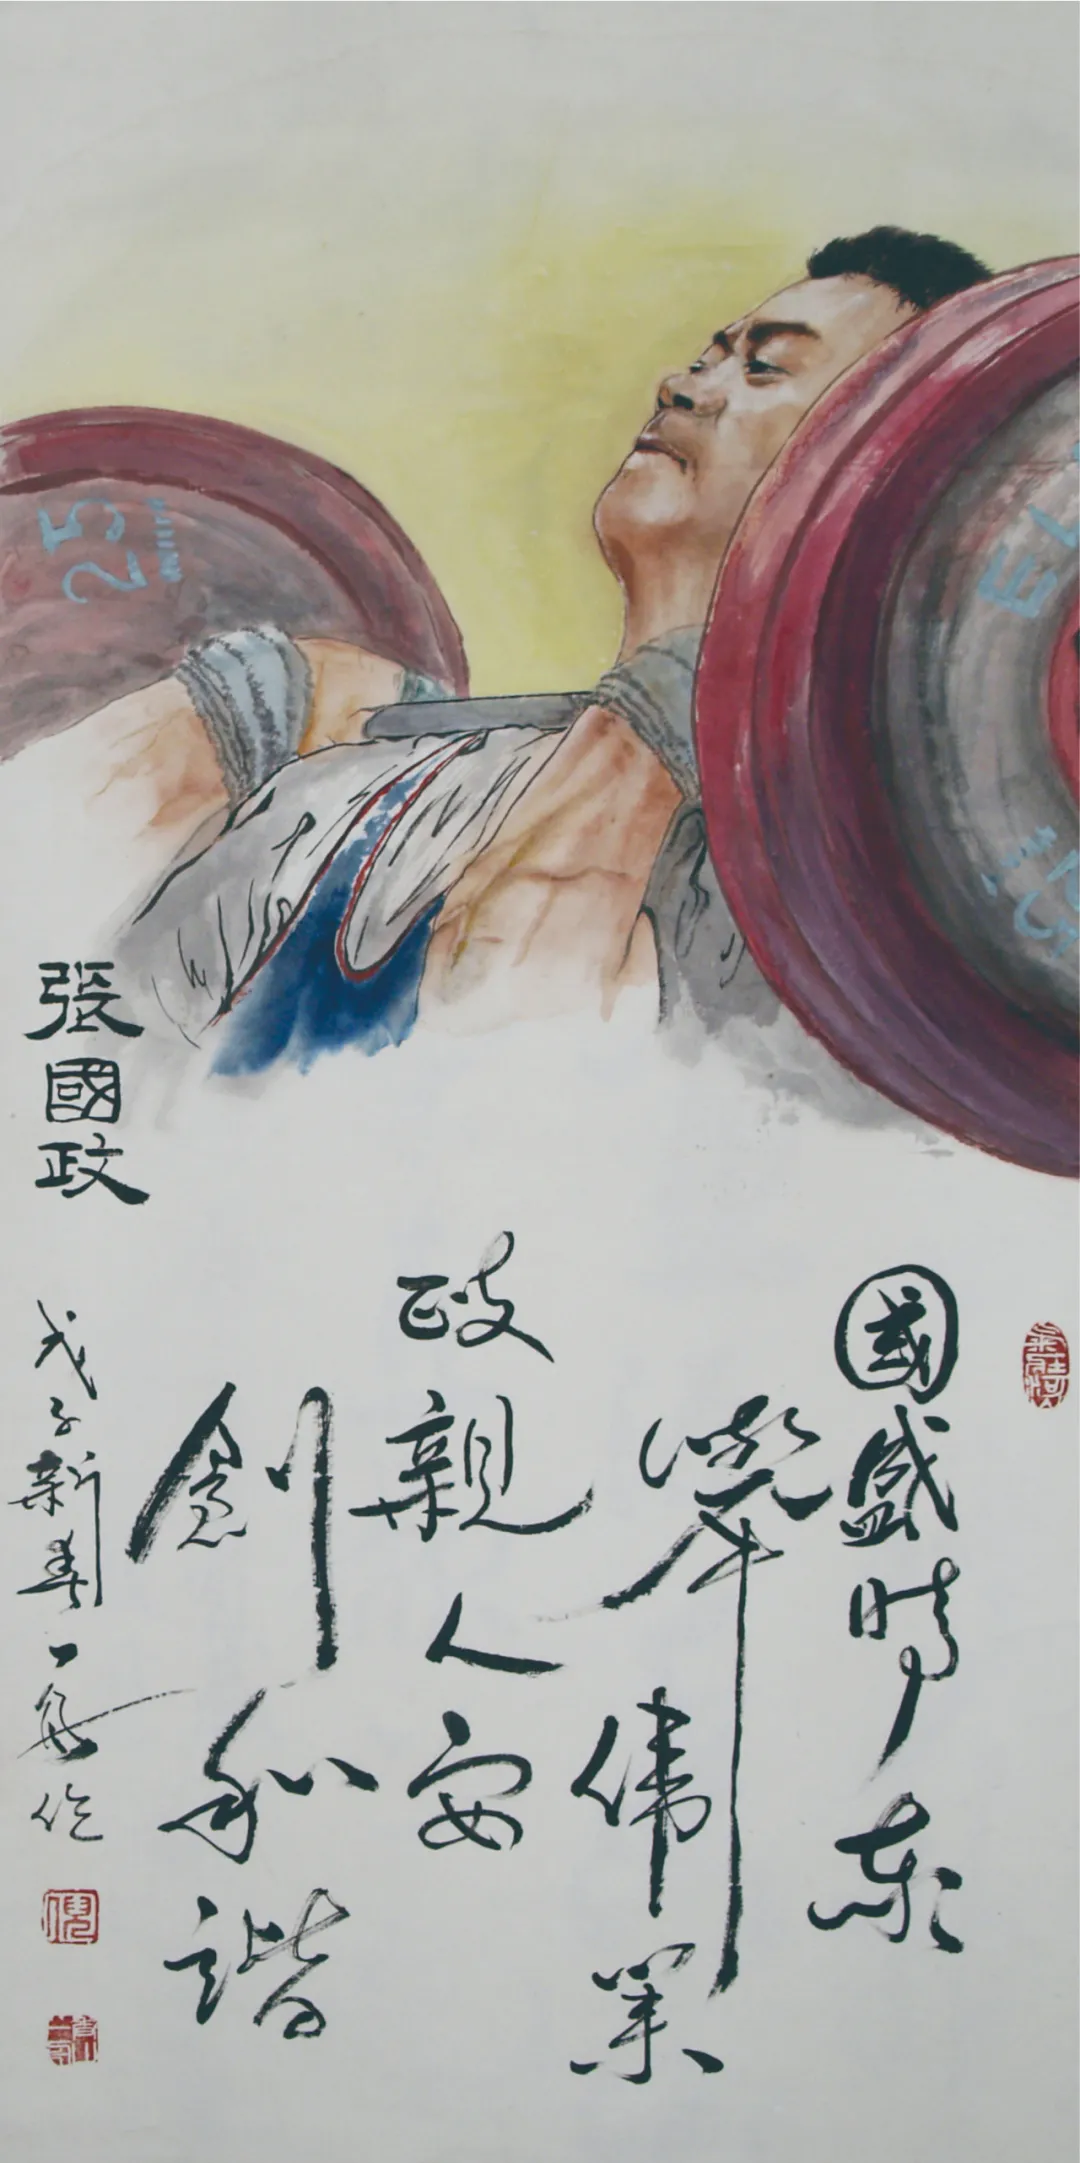 25
國盛時泰
舉偉業
政親人安
創和諧
張國政
戊子新春一
作